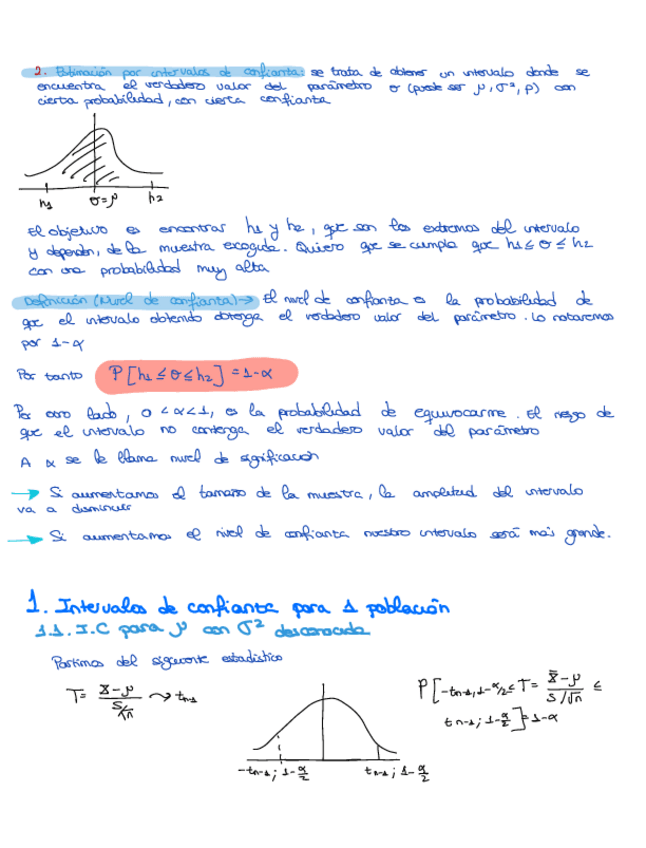 2. Estimación por intervalos de confianza: se trata de obtener un intervalo donde se
encuentra el verdadero valor del parámetro σ (puede ser μ, σ², p) con
cierta probabilidad, con cierta confianza
h1 σ=μ h2
El objetivo es encontrar h1 y h2, que son los extremos del intervalo
y dependen, de la muestra escogida. Quiero que se cumpla que h1 ≤ σ ≤ h2
con una probabilidad muy alta
Definición (Nivel de confianza) → El nivel de confianza es la probabilidad de
que el intervalo obtenido obtenga el verdadero valor del parámetro. Lo notaremos
por 1-α
Por tanto P[h1 ≤ σ ≤ h2] = 1-α
Por otro lado, 0 < α < 1, es la probabilidad de equivocarme. El riesgo de
que el intervalo no contenga el verdadero valor del parámetro
A α se le llama nivel de significación
→ Si aumentamos el tamaño de la muestra, la amplitud del intervalo
va a disminuir
→ Si aumentamos el nivel de confianza nuestro intervalo será más grande.
1. Intervalos de confianza para 1 población
1.1. I.C para μ con σ² desconocida
Partimos del siguiente estadístico
T = x̄-μ / S/√n ⤳ tn-1
-tn-1; 1-α/2 tn-1; 1-α/2
P[-tn-1,1-α/2 ≤ T = x̄-μ / S/√n ≤
tn-1; 1-α/2] = 1-α